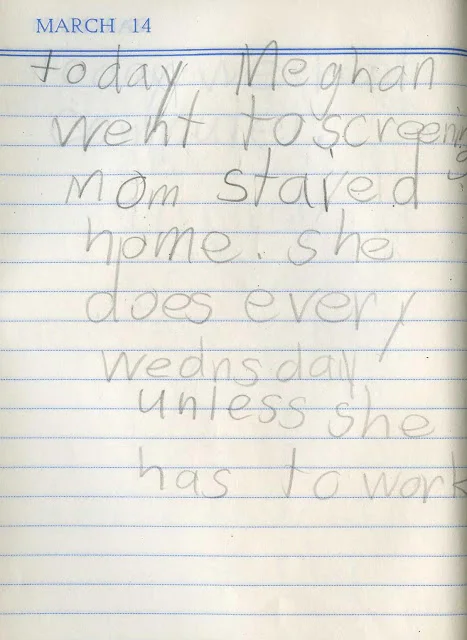 MARCH 14
today Meghan
went to screening
Mom stayed
home. she
does every
wednsday
unless she
has to work